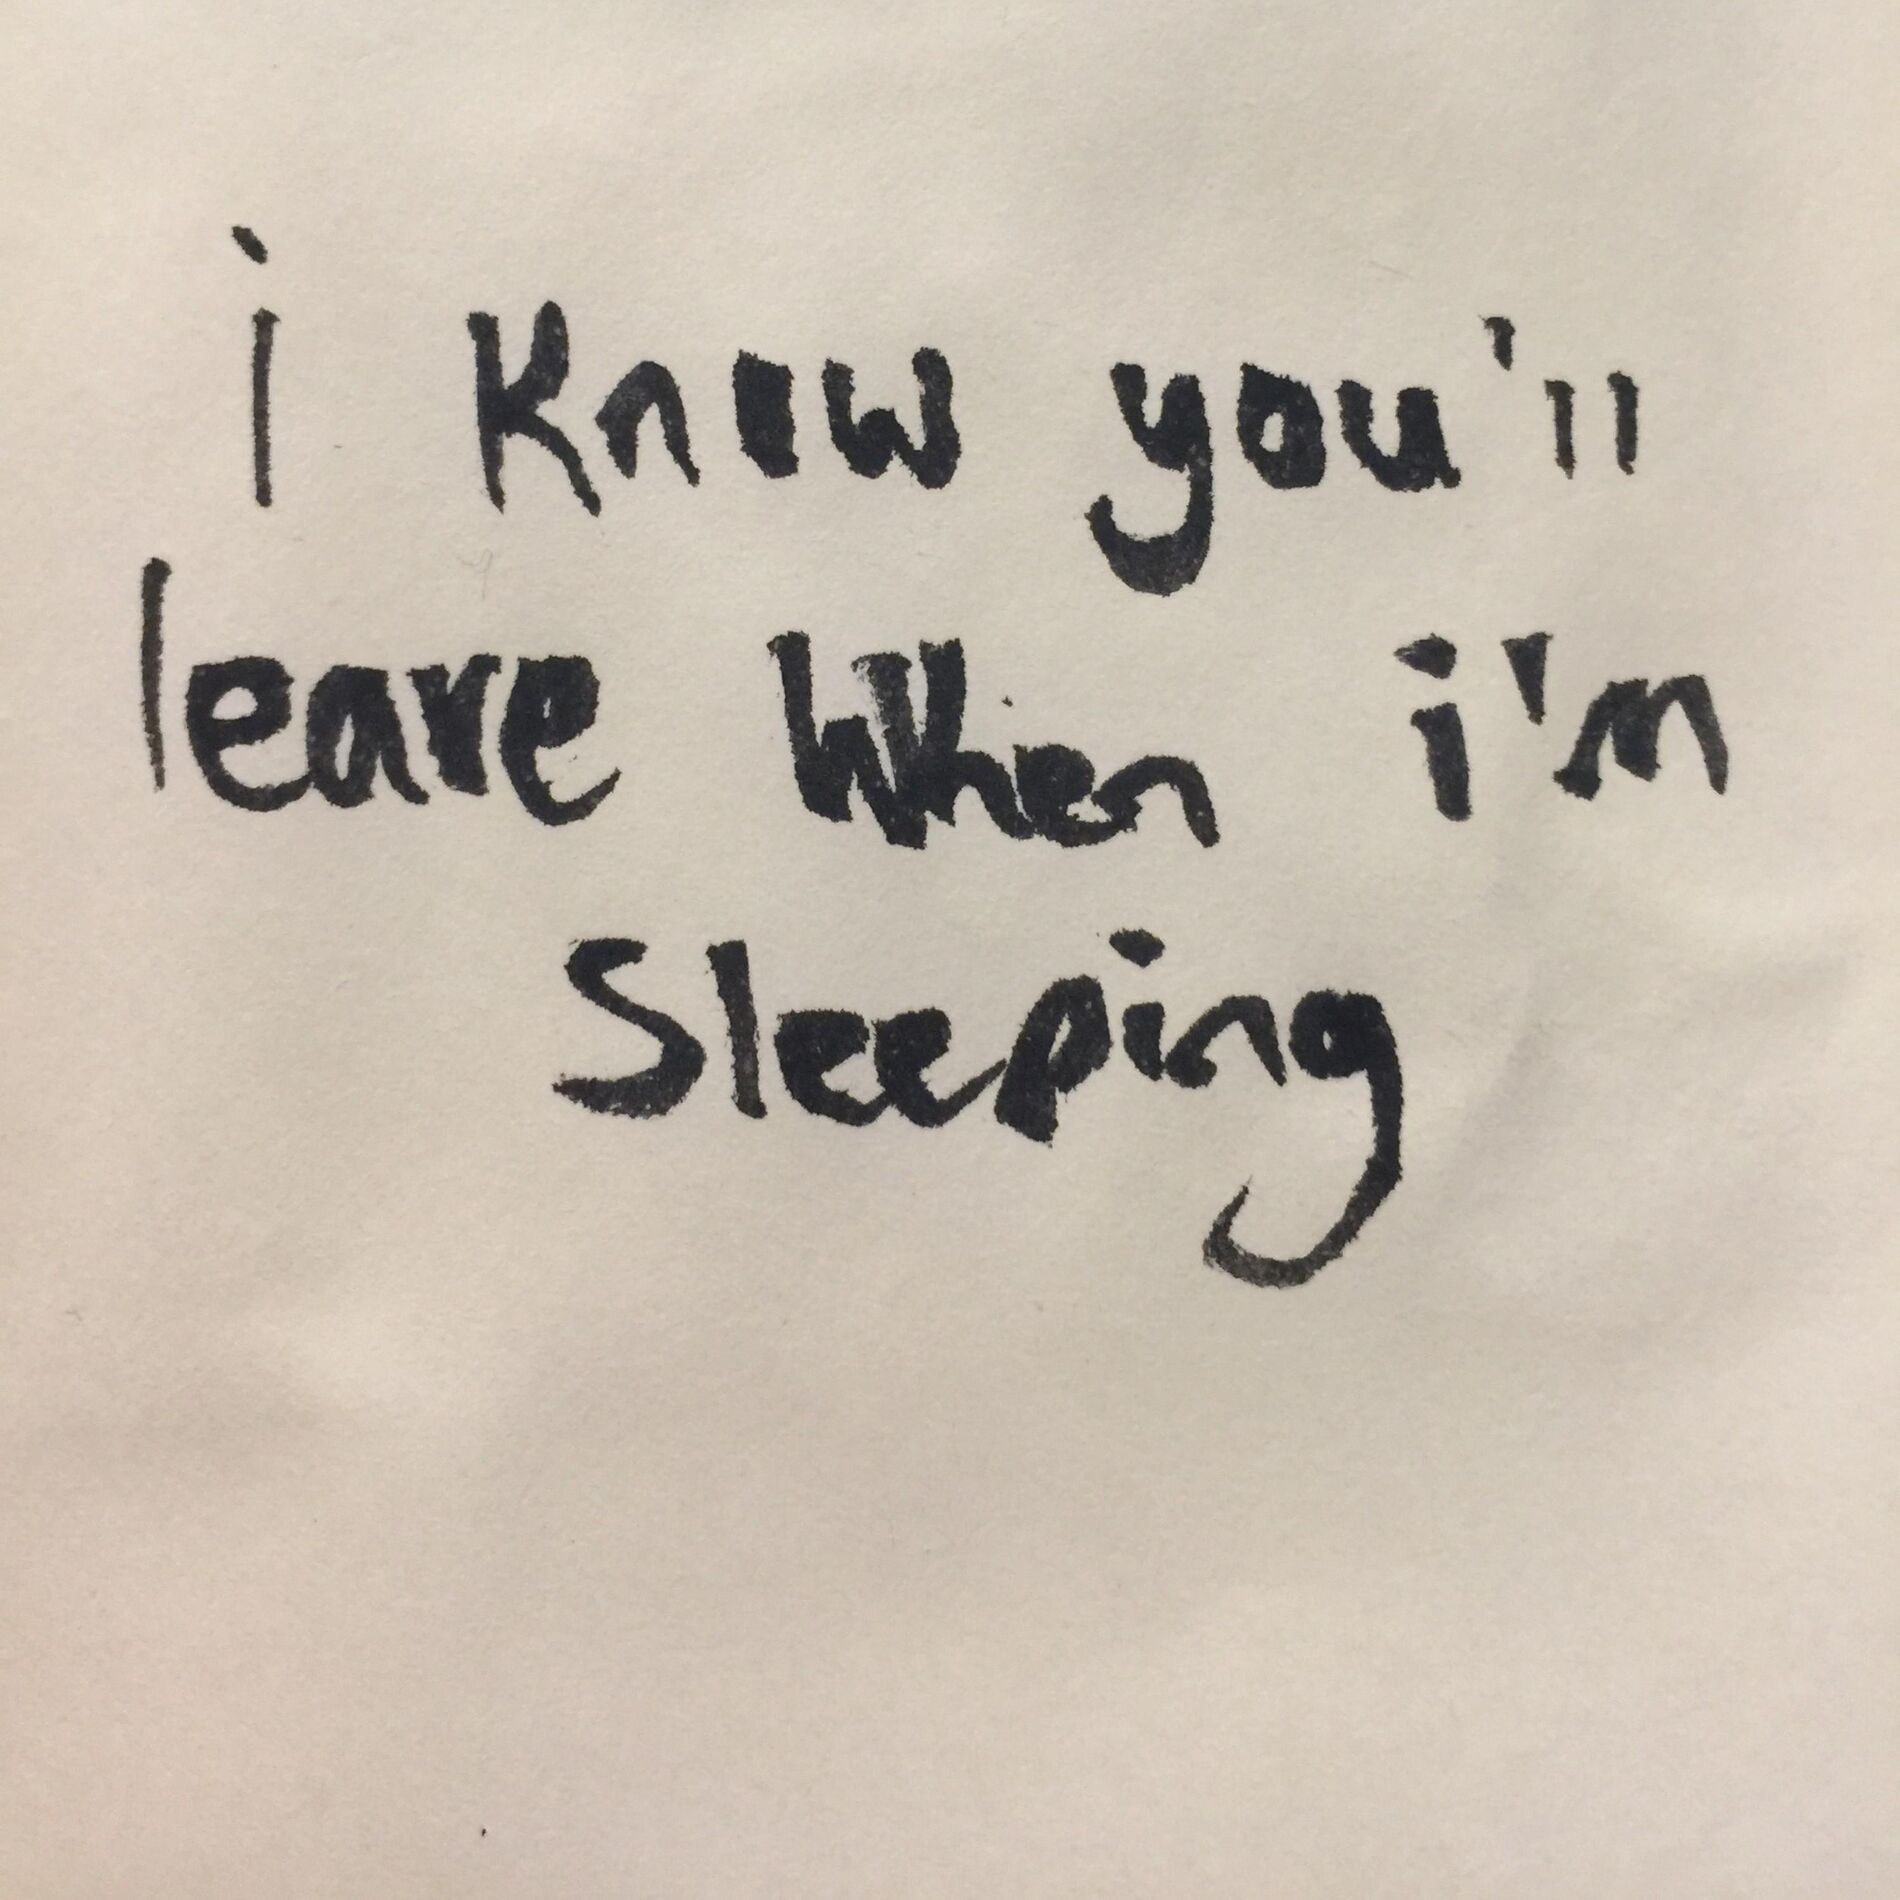 i know you'll
leave when i'm
sleeping